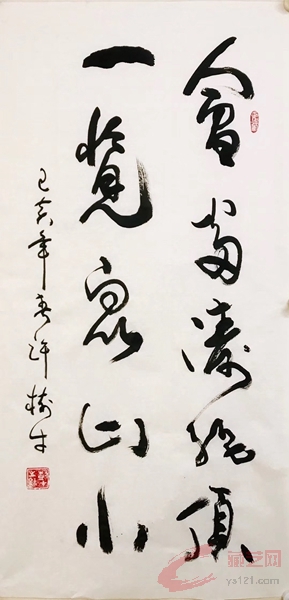 會當凌絕頂
一覽眾山小
己亥年春許樹
藏艺网
ys121.com